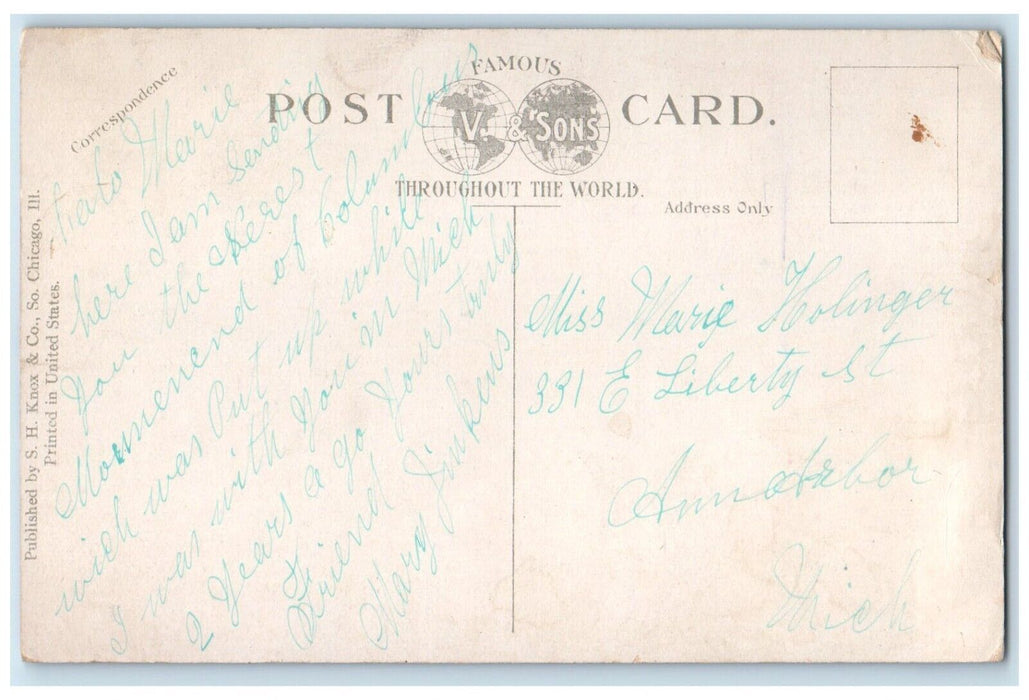 Correspondence
FAMOUS
POST CARD.
V. & SONS
THROUGHOUT THE WORLD.
Address Only
Published by S. H. Knox & Co., So. Chicago, Ill.
Printed in United States.
Marie
here I am Sending
You the
of Columbus
wich was Put up while
I was with You in Mich
2 Years a go Yours truly
Friend
Mary Jinkens
Miss Marie Holinger
331 E Liberty St
Ann Arbor
Mich